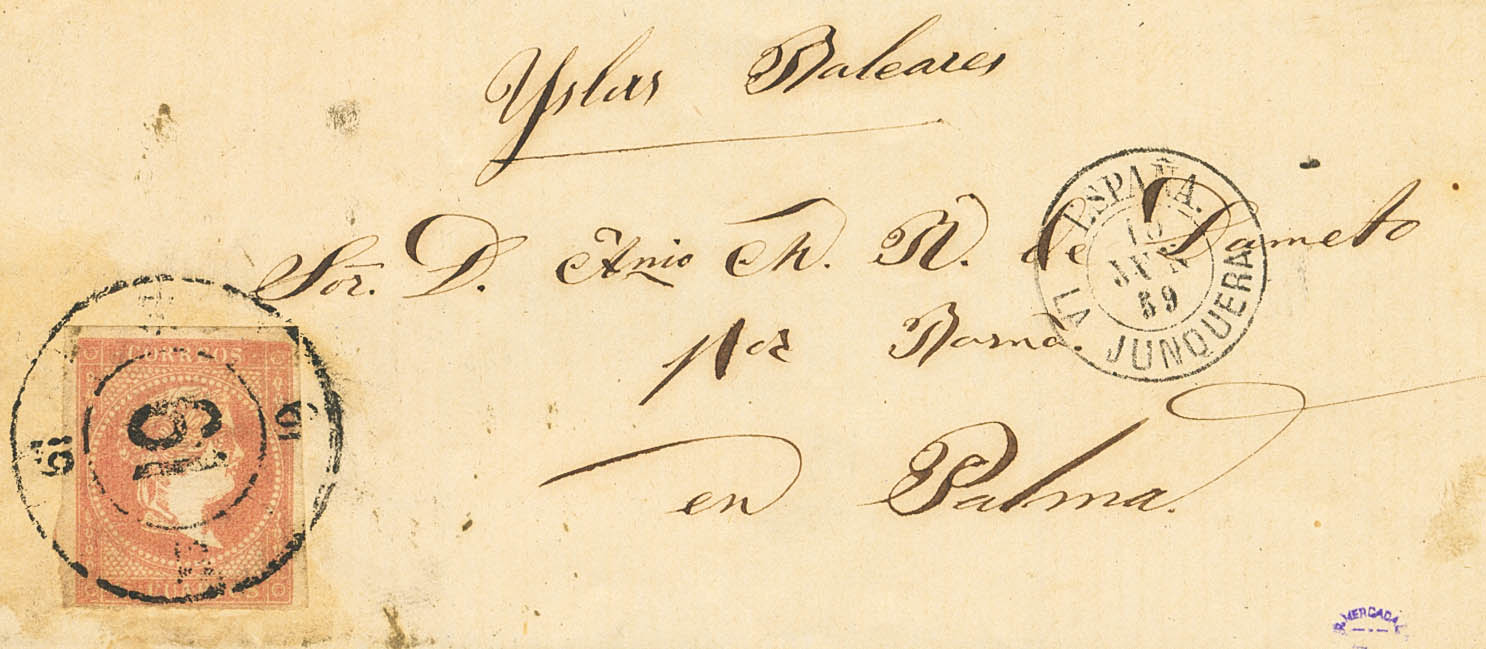 Yslas Baleares
Sor. D. Anio M. R. de Dameto
por Barna.
en Palma.
ESPAÑA.
10
JUN
59
LA JUNQUERA
CORREOS
19
19
19
R. MERCADAL